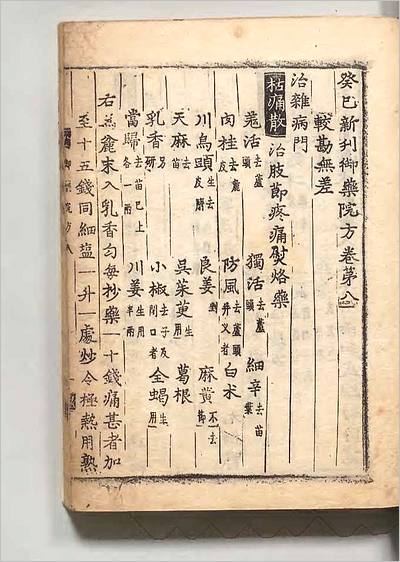 癸巳新刊御藥院方卷第八
較勘無差
治雜病門
拈痛散 治肢節疼痛熨烙藥
羗活去蘆頭 獨活去蘆頭 細辛去苗葉
肉桂去麁皮 防風去蘆頭并叉者 白朮
川烏頭生去皮臍 良姜剉 麻黃不去節
天麻去苗 吳茱萸生用 葛根
乳香研 小椒去子及閉口者 全蝎生用
當歸去苗巳上各一兩 川姜生用半兩
右爲麄末入乳香勻每抄藥一十錢痛甚者加
至十五錢同細塩一升一處炒令極熱用熟
御藥院方八